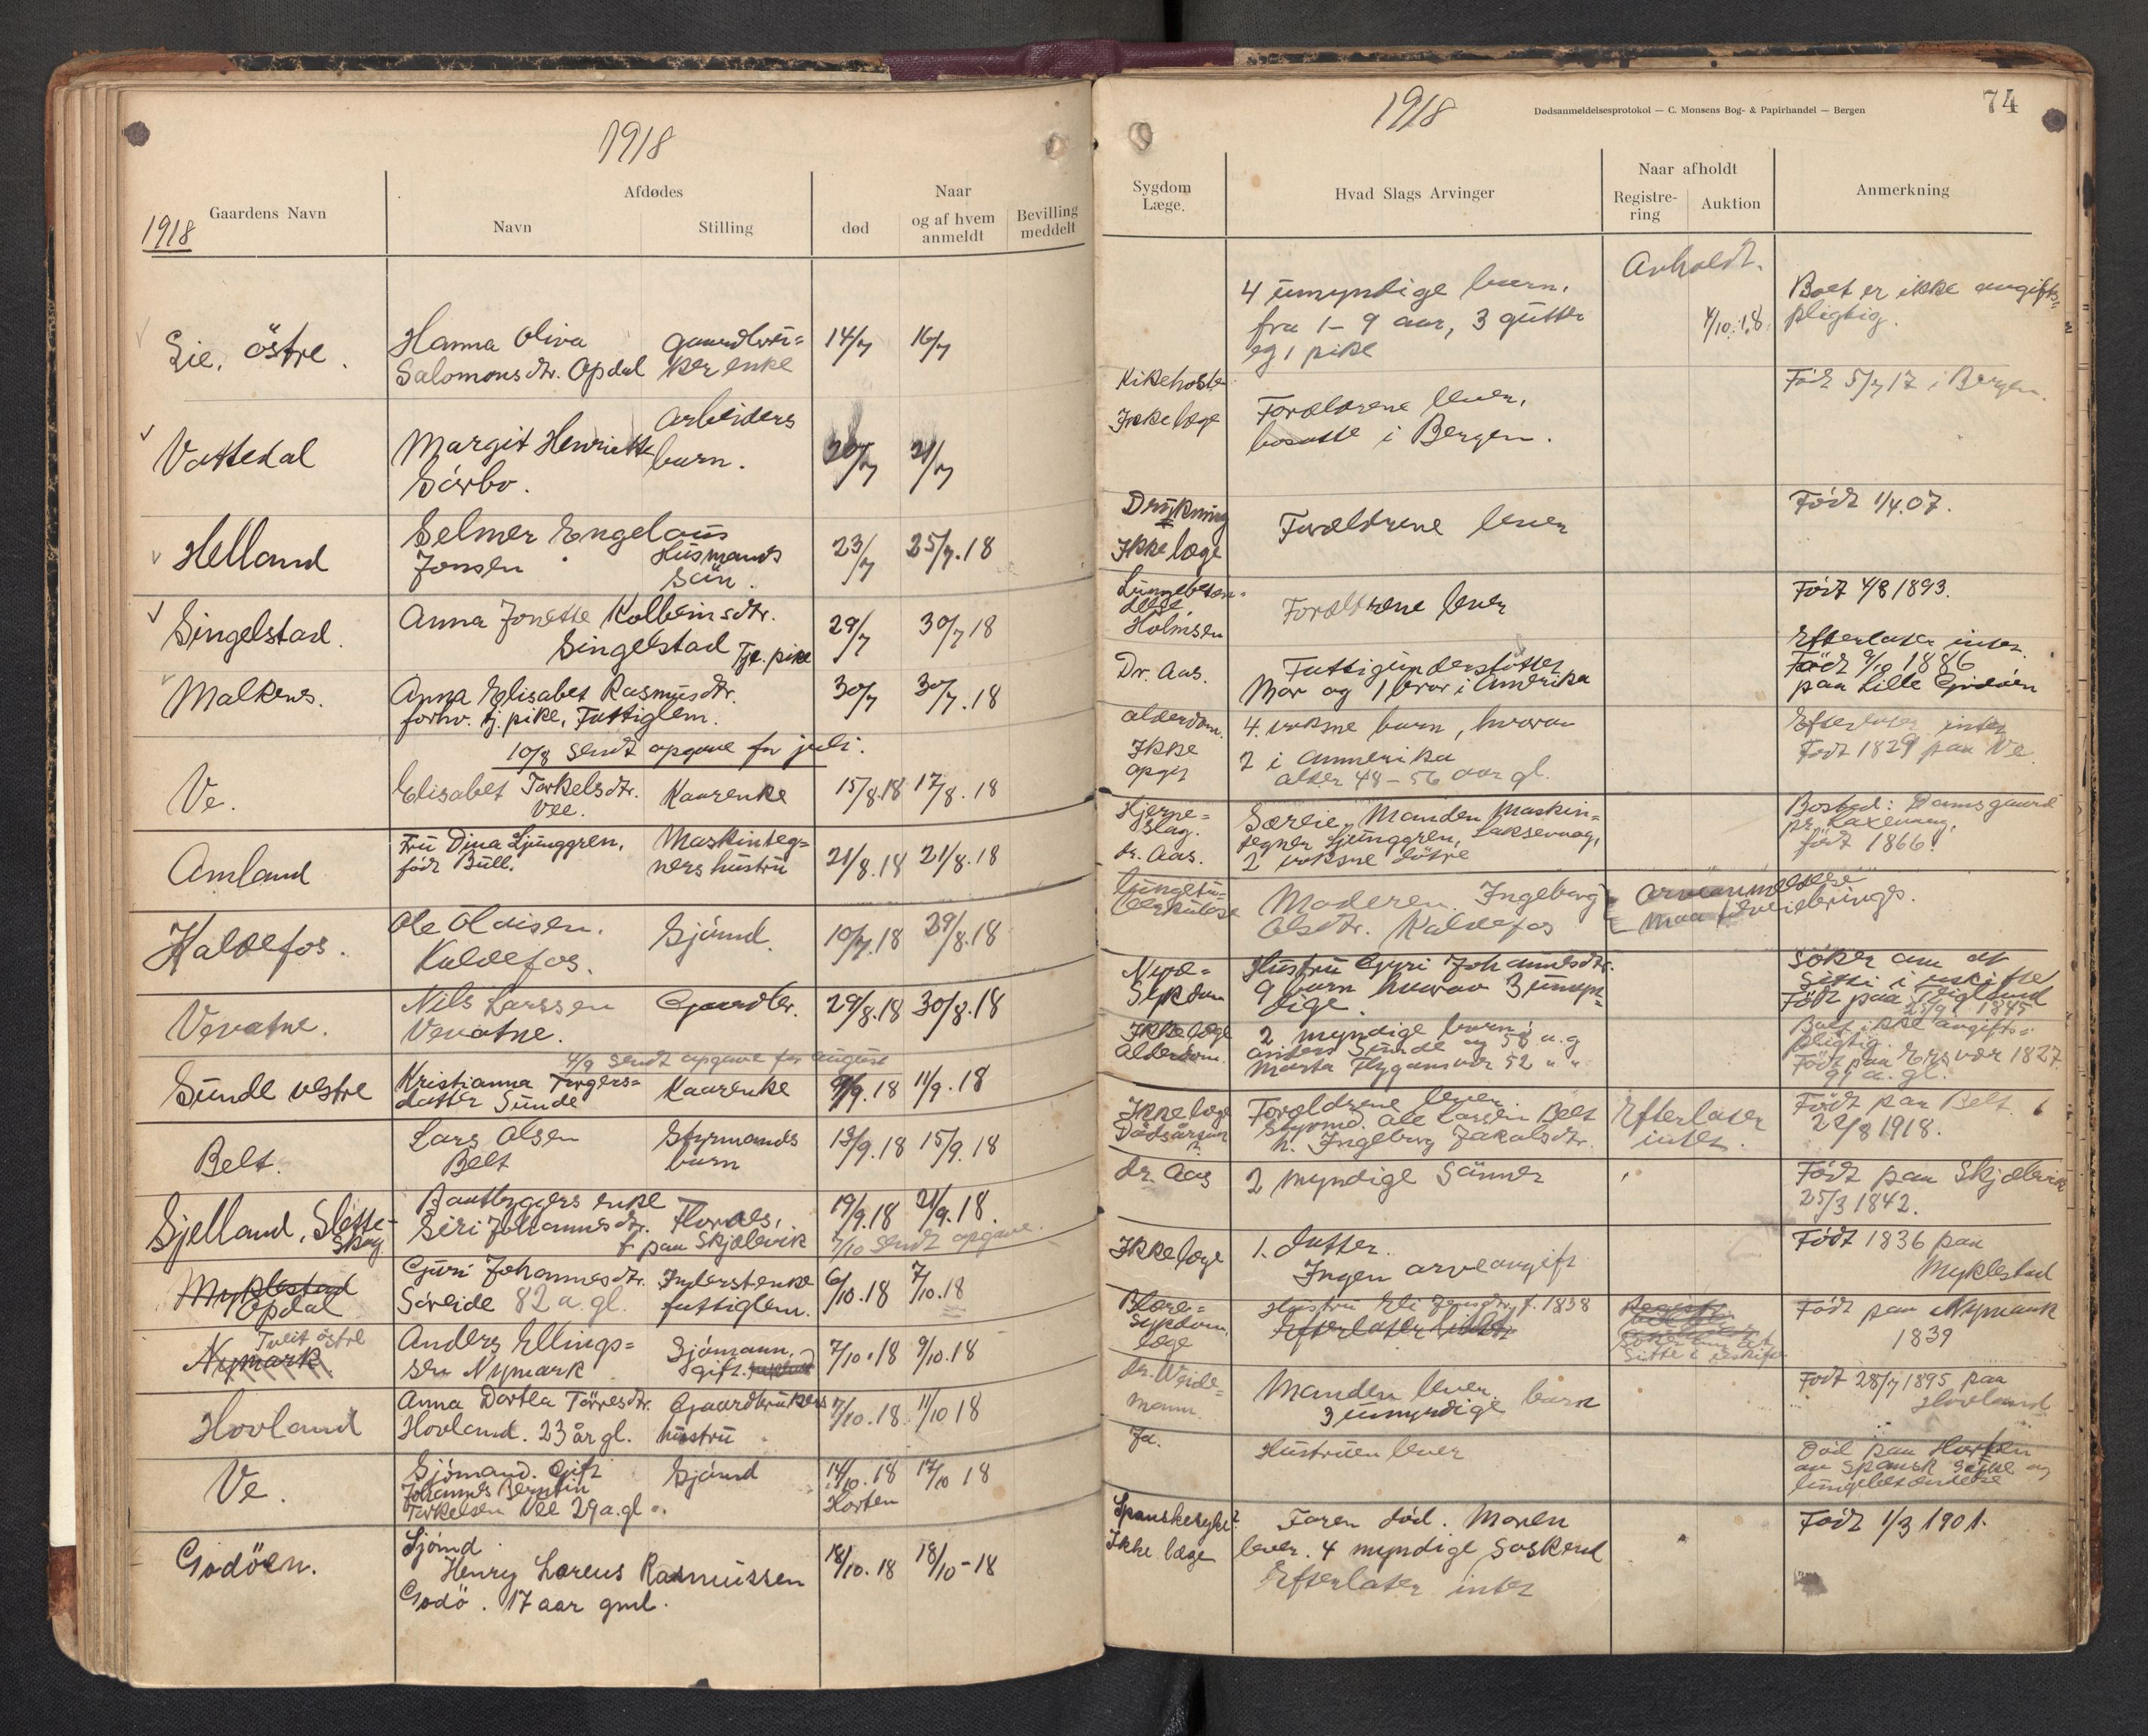 1918
Afdødes
Naar
Gaardens Navn
Navn
Stilling
død
og af hvem
anmeldt
Bevilling
meddelt
1918
Lie, östre.
Hanna Oliva
Salomonsdtr. Opdal
gaardbru=
kerenke
14/7
16/7
Vattedal
Margit Henriette
Sörbö.
Arbeiders
barn.
20/7
21/7
Helland
Selmer Engelaus
Jonsen
Husmands
Sön.
23/7
25/7.18
Singelstad.
Anna Jonette Kolbeinsdtr.
Singelstad Tje. pike
29/7
30/7 18
Malkenes.
Anna Elisabet Rasmusdtr.
forhv. tj. pike, Fattiglem.
30/7
30/7.18
10/8 Sendt opgave for juli.
Ve.
Elisabet Torkelsdtr.
Vee.
Kaarenke
15/8.18
17/8.18
Amland
Fru Dina Ljunggren,
född Bull.
Maskinteg=
ners hustru
21/8.18
21/8.18
Kaldefos.
Ole Olaisen.
Kaldefos.
Sjömd.
10/7.18
29/8.18
Vevatne.
Nils Larssen
Vevatne.
Gaardbr.
29/8.18
30/8.18
4/9 Sendt opgave for august
Sunde vestre
Kristianna Torgers=
datter Sunde
Kaarenke
9/9.18
11/9.18
Belt.
Lars Olsen
Belt
Styrmands
barn
13/9.18
15/9.18
Gjelland, Slette-
skog
Baatbyggers enke
Siri Johannesdtr. Flornes,
f. paa Skjelevik
19/9.18
21/9.18.
7/10 Sendt opgave.
Myklestad
Opdal
Guri Johannesdtr.
Söreide 82 a. gl.
Inderstenke
fattiglem.
6/10.18
7/10.18
Tveit östre
Nymark
Anders Ellings=
sen Nymark
Sjömann.
gift.
7/10.18
9/10.18
Hovland
Anna Dortea Törresdtr.
Hovland. 23 år gl.
Gaardbrukers
hustru
7/10.18
11/10 18
Ve.
Sjömand. Gift
Johannes Berntin
Torkelsen Vee 29 a. gl.
Sjömd
14/10.18
Horten
17/10 18
Godöen.
Sjömd.
Henry Lorens Rasmussen
Godö. 17 aar gml.
18/10.18
18/10-18
1918
Dødsanmeldelsesprotokol — C. Monsens Bog- & Papirhandel — Bergen
74
Sygdom
Læge.
Hvad Slags Arvinger
Naar afholdt
Registre-
ring
Auktion
Anmerkning
4 umyndige barn,
fra 1-9 aar, 3 gutter
og 1 pike
Avholdt.
4/10.18
Boet er ikke avgifts=
pligtig.
Kikehoste
Ikke læge
Forældrene lever,
bosatte i Bergen.
Född 5/7 17 i Bergen.
Drukning
Ikke læge
Forældrene lever
Född 1/4.07.
Lungebeten-
delse.
Holmsen
Forældrene lever
Född 4/8 1893.
Dr. Aas.
Fattigunderstöttet
Mor og 1 bror i Amerika
Efterlater intet.
Född 9/10 1886
paa Lille Godöen
alderdom.
Ikke
opgit
4. voksne barn, hvorav
2 i Ammerika
alder 48-56 aar gl.
Efterlater intet
Född 1829 paa Ve.
Hjerne=
slag.
dr. Aas.
Særeie. Manden Maskin=
tegner Ljunggren, Laksevaag,
2 voksne dötre
Bosted: Damsgaard
pr. Laxevaag,
född 1866.
Lungetu-
berkulose
Moderen. Ingeborg
Olsdtr. Kaldefos
Arveanmeldelse
Nyre=
Sykdom
Hustru Guri Johannesdtr.
9 barn hvorav 3 umyn=
dige.
Söker om at
Sitti i uskifte
Född paa Teigland
25/9 1845
Ikke læge
Alderdom.
2 myndige barn:
Anders Sunde og 58 a. g
Marta Flygansvær 52 " "
Boet ikke avgifts=
pligtig.
Född paa Ersvær 1827
91 a. gl.
Ikke læge
Dödsårsak
Forældrene lever.
Styrmd. Ole Larsen Belt
h. Ingeborg Jakobsdtr.
Efterlater
intet.
Född paa Belt.
22/8 1918.
dr. Aas
2 myndige Sönner
Född paa Skjelevik
25/3 1842.
Ikke læge
1. datter.
Ingen arveavgift
Född 1836 paa
Myklestad
Blære=
Sykdom,
læge
Hustru Eli Jensdtr, f. 1838
Efterlater intet
Sitte i uskifte
Född paa Nymark
1839
dr. Weide=
mann.
Manden lever.
3 umyndige barn
Född 28/7 1895 paa
Hovland
Ja.
Hustruen lever
Död paa Horten
av Spansk Syke og
lungebetendelse
Spanskesyke?
Ikke læge
Faren död. Moren
lever. 4 myndige Söskend
Efterlater intet
Född 1/3 1901.